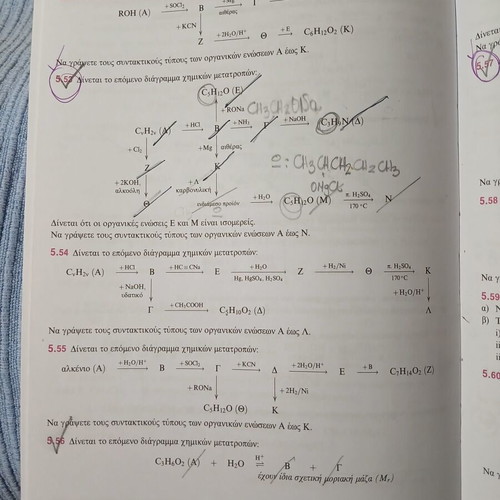 ROH (A) +SOCl₂ B +Mg αιθέρας Γ
+KCN
Z +2H₂O/H⁺ Θ +E C₆H₁₂O₂ (K)
Να γράψετε τους συντακτικούς τύπους των οργανικών ενώσεων Α έως Κ.
5.53 Δίνεται το επόμενο διάγραμμα χημικών μετατροπών:
C₅H₁₂O (E)
+RONa CH₃CH₂ONa
CᵥH₂ᵥ (A) +HCl B +NH₃ Γ +NaOH C₃H₉N (Δ)
+Cl₂ +Mg αιθέρας
Θ: CH₃CHCH₂CH₂CH₃
Z K OMgCl
+2KOH, αλκοόλη +Λ καρβονυλική
Θ ενδιάμεσο προϊόν +H₂O C₅H₁₂O (M) π. H₂SO₄ 170 °C N
Δίνεται ότι οι οργανικές ενώσεις Ε και Μ είναι ισομερείς.
Να γράψετε τους συντακτικούς τύπους των οργανικών ενώσεων Α έως Ν.
5.54 Δίνεται το επόμενο διάγραμμα χημικών μετατροπών:
CᵥH₂ᵥ (A) +HCl B +HC≡CNa E +H₂O Hg, HgSO₄, H₂SO₄ Z +H₂/Ni Θ π. H₂SO₄ 170°C K
+NaOH, υδατικό +H₂O/H⁺
Γ +CH₃COOH C₅H₁₀O₂ (Δ) Λ
Να γράψετε τους συντακτικούς τύπους των οργανικών ενώσεων Α έως Λ.
5.55 Δίνεται το επόμενο διάγραμμα χημικών μετατροπών:
αλκένιο (A) +H₂O/H⁺ B +SOCl₂ Γ +KCN Δ +2H₂O/H⁺ E +B C₇H₁₄O₂ (Z)
+RONa +2H₂/Ni
C₅H₁₂O (Θ) K
Να γράψετε τους συντακτικούς τύπους των οργανικών ενώσεων Α έως Κ.
5.56 Δίνεται το επόμενο διάγραμμα χημικών μετατροπών:
C₃H₆O₂ (A) + H₂O H⁺ ⇌ B + Γ
έχουν ίδια σχετική μοριακή μάζα (Mᵣ)
Δίνεται
Να γρά
5.57
Να γ
5.58
Να γ
5.59
α) Ν
β) Τ
i)
ii
ii
5.60
Να γ